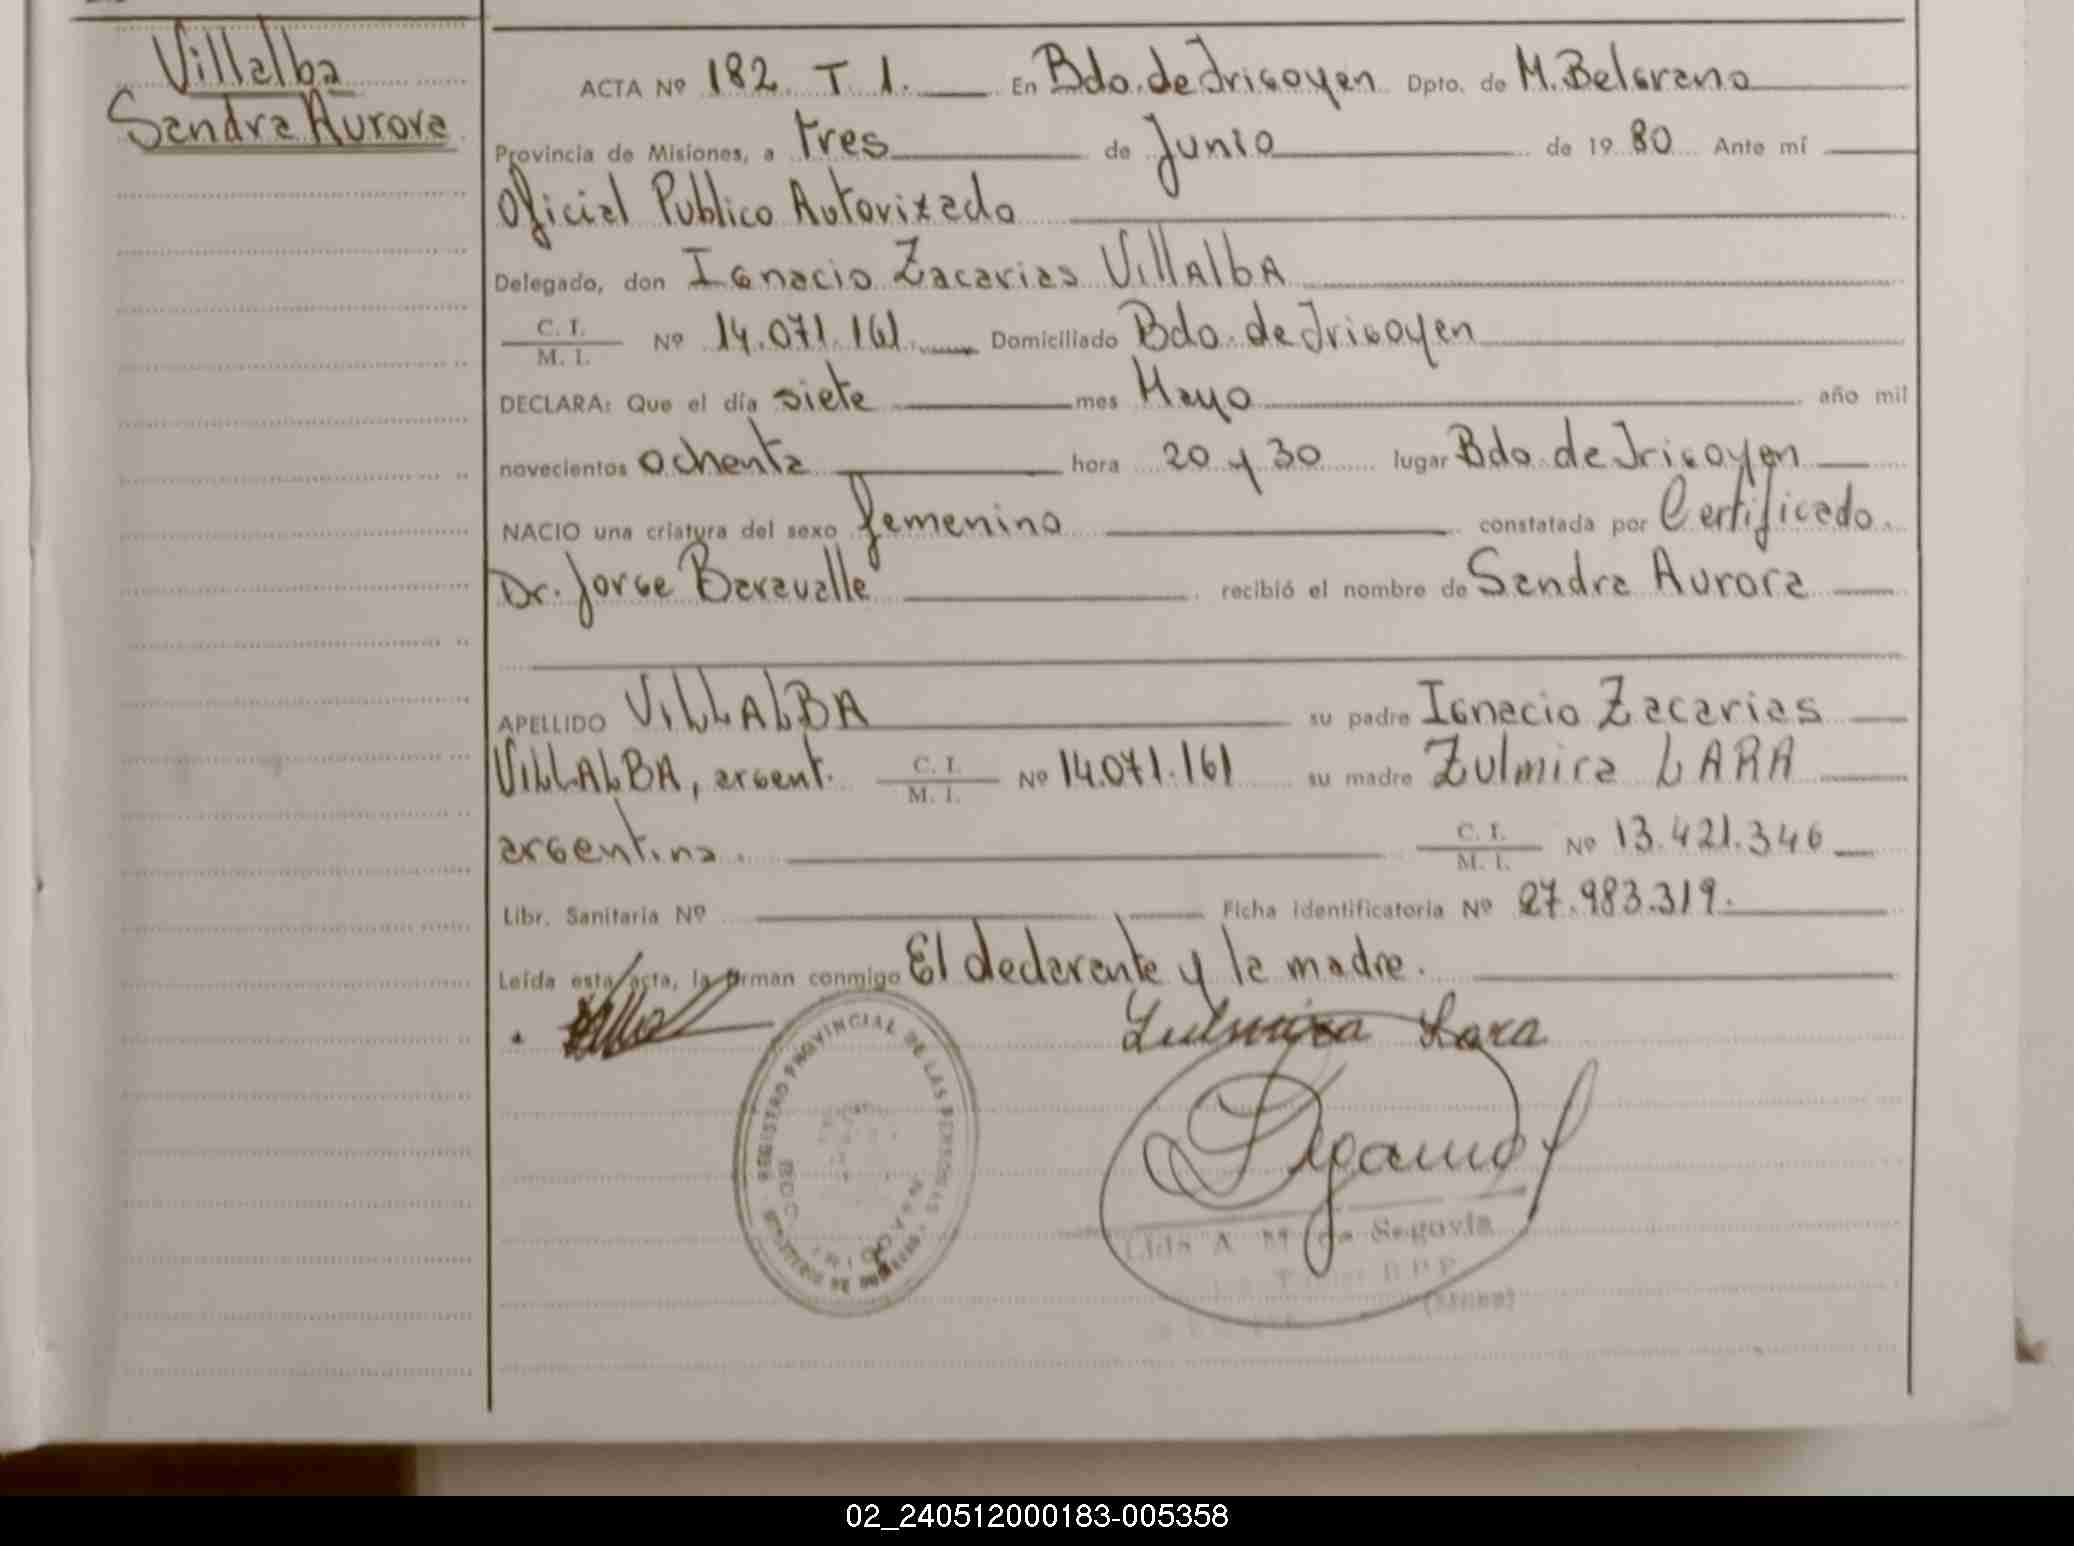 Villalba
Sandra Aurora
ACTA Nº 182 T 1. En Bdo. de Irigoyen Dpto. de M. Belgrano
Provincia de Misiones, a tres de Junio de 1980 Ante mí
Oficial Publico Autorizado
Delegado, don Ignacio Zacarias VillAlbA
C. I. / M. I. Nº 14.071.161 Domiciliado Bdo. de Irigoyen
DECLARA: Que el día siete mes Mayo año mil
novecientos ochenta hora 20 y 30 lugar Bdo. de Irigoyen
NACIO una criatura del sexo femenino constatada por Certificado.
Dr. Jorge Baravalle recibió el nombre de Sandra Aurora
APELLIDO VILLALBA su padre Ignacio Zacarias
VILLALBA, argent. C. I. / M. I. Nº 14.071.161 su madre Zulmira LARA
argentina. C. I. / M. I. Nº 13.421.346
Libr. Sanitaria Nº Ficha identificatoria Nº 27.983.319.
Leída esta acta, la firman conmigo El declarante y la madre.
Zulmira Lara
REGISTRO PROVINCIAL DE LAS PERSONAS
BDO. IRIGOYEN
A. M. de Segovia
R.P.P.
(Mnes)
02_240512000183-005358